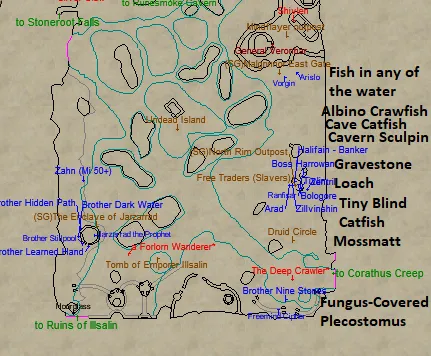 to Stoneroot Falls
to Runesmoke Cavern
Shivlen
outpost
General Veromar
(SG)
East Gate
Vorgin
Arislo
Fish in any of
the water
Albino Crawfish
Cave Catfish
Cavern Sculpin
Undead Island
(SG)North Rim Outpost
Halifain - Banker
Boss Harrowan
Gravestone
Loach
Free Traders (Slavers)
Zahn (Mi 50+)
Bologore
Arad
Zillvinshin
Tiny Blind
Catfish
Mossmatt
Brother Hidden Path
Brother Dark Water
(SG)The Enclave of Jarzarrad
Jarzarrad the Prophet
Brother Stillpool
Brother Learned Hand
a Forlorn Wanderer"
Druid Circle
Tomb of Emperor Illsalin
"The Deep Crawler"
to Corathus Creep
Brother Nine Stones
Fungus-Covered
Plecostomus
to Ruins of Illsalin